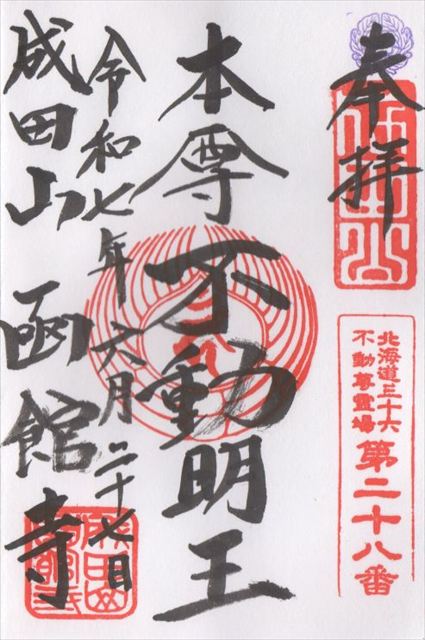 奉拝
北海道三十六
不動尊霊場
第二十八番
本尊不動明王
令和七年六月二十七日
成田山函館寺